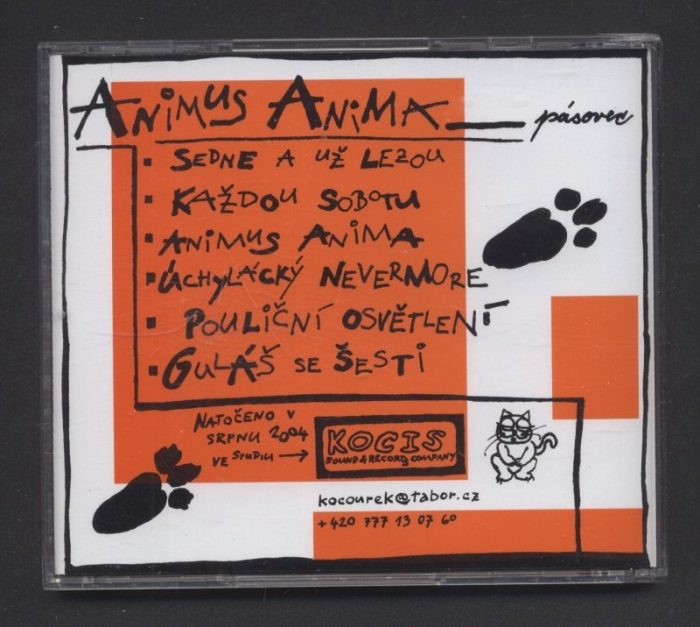 ANIMUS ANIMA pásovec
SEDNE A UŽ LEZOU
KAŽDOU SOBOTU
ANIMUS ANIMA
ÚCHYLÁCKÝ NEVERMORE
POULIČNÍ OSVĚTLENÍ
GULÁŠ SE ŠESTI
NATOČENO V
SRPNU 2004
VE STUDIU →
KOCIS
SOUND & RECORD COMPANY
kocourek@tabor.cz
+420 777 13 07 60